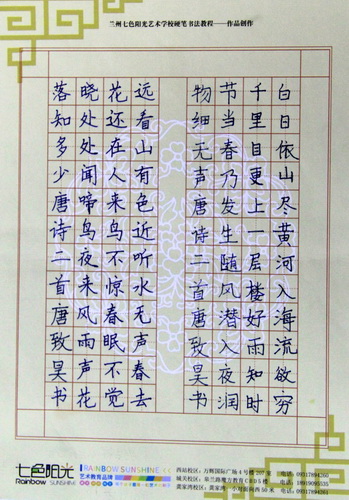 兰州七色阳光艺术学校硬笔书法教程——作品创作
白日依山尽黄河入海流欲穷
千里目更上一层楼好雨知时
节当春乃发生随风潜入夜润
物细无声唐诗二首唐致昊书
远看山有色近听水无声春去
花还在人来鸟不惊春眠不觉
晓处处闻啼鸟夜来风雨声花
落知多少唐诗二首唐致昊书
七色阳光
Rainbow SUNSHINE
RAINBOW SUNSHINE
艺术教育品牌
西站校区：万辉国际广场4号楼207室 电话：
城关校区： 电话：
黄家湾校区： 电话：